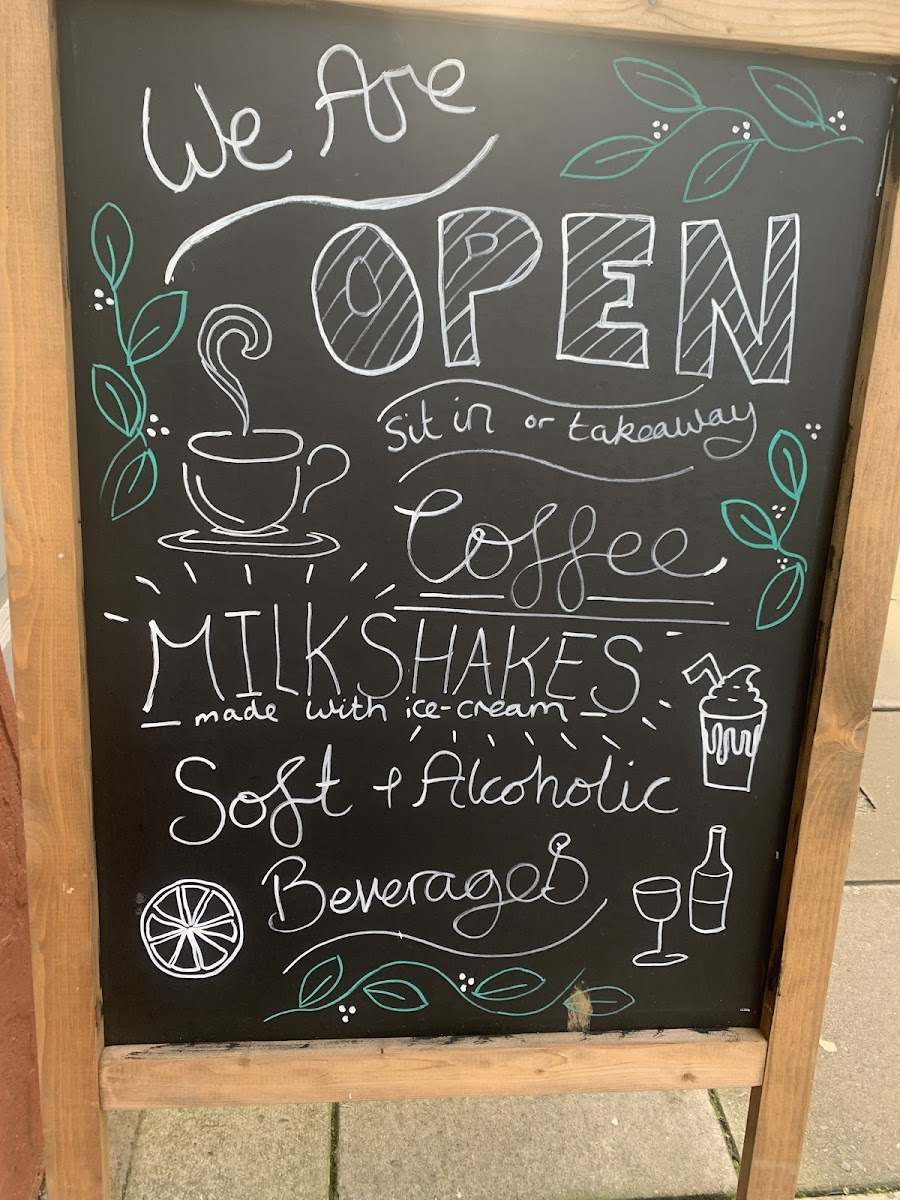 We Are
OPEN
sit in or takeaway
Coffee
MILKSHAKES
made with ice-cream
Soft + Alcoholic
Beverages